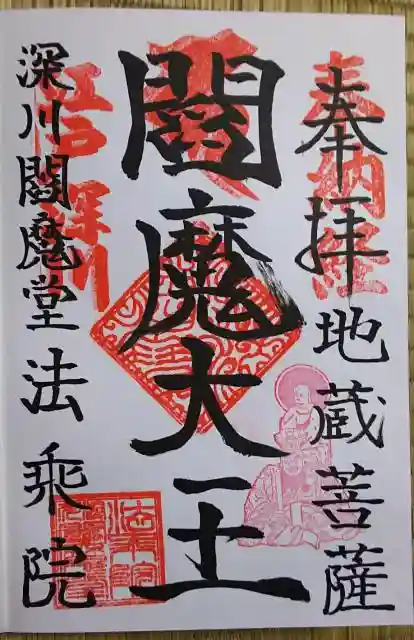 奉拝
地蔵菩薩
奉納経
閻魔大王
深川閻魔堂法乗院
江戸深川